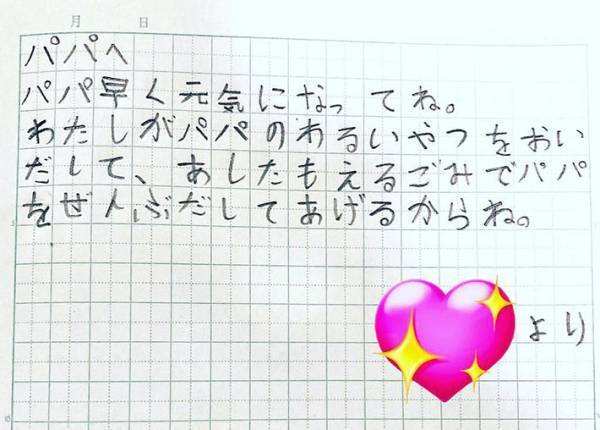 月 日
パパへ
パパ早く元気になってね。
わたしがパパのわるいやつをおい
だして、あしたもえるごみでパパ
をぜんぶだしてあげるからね。
より